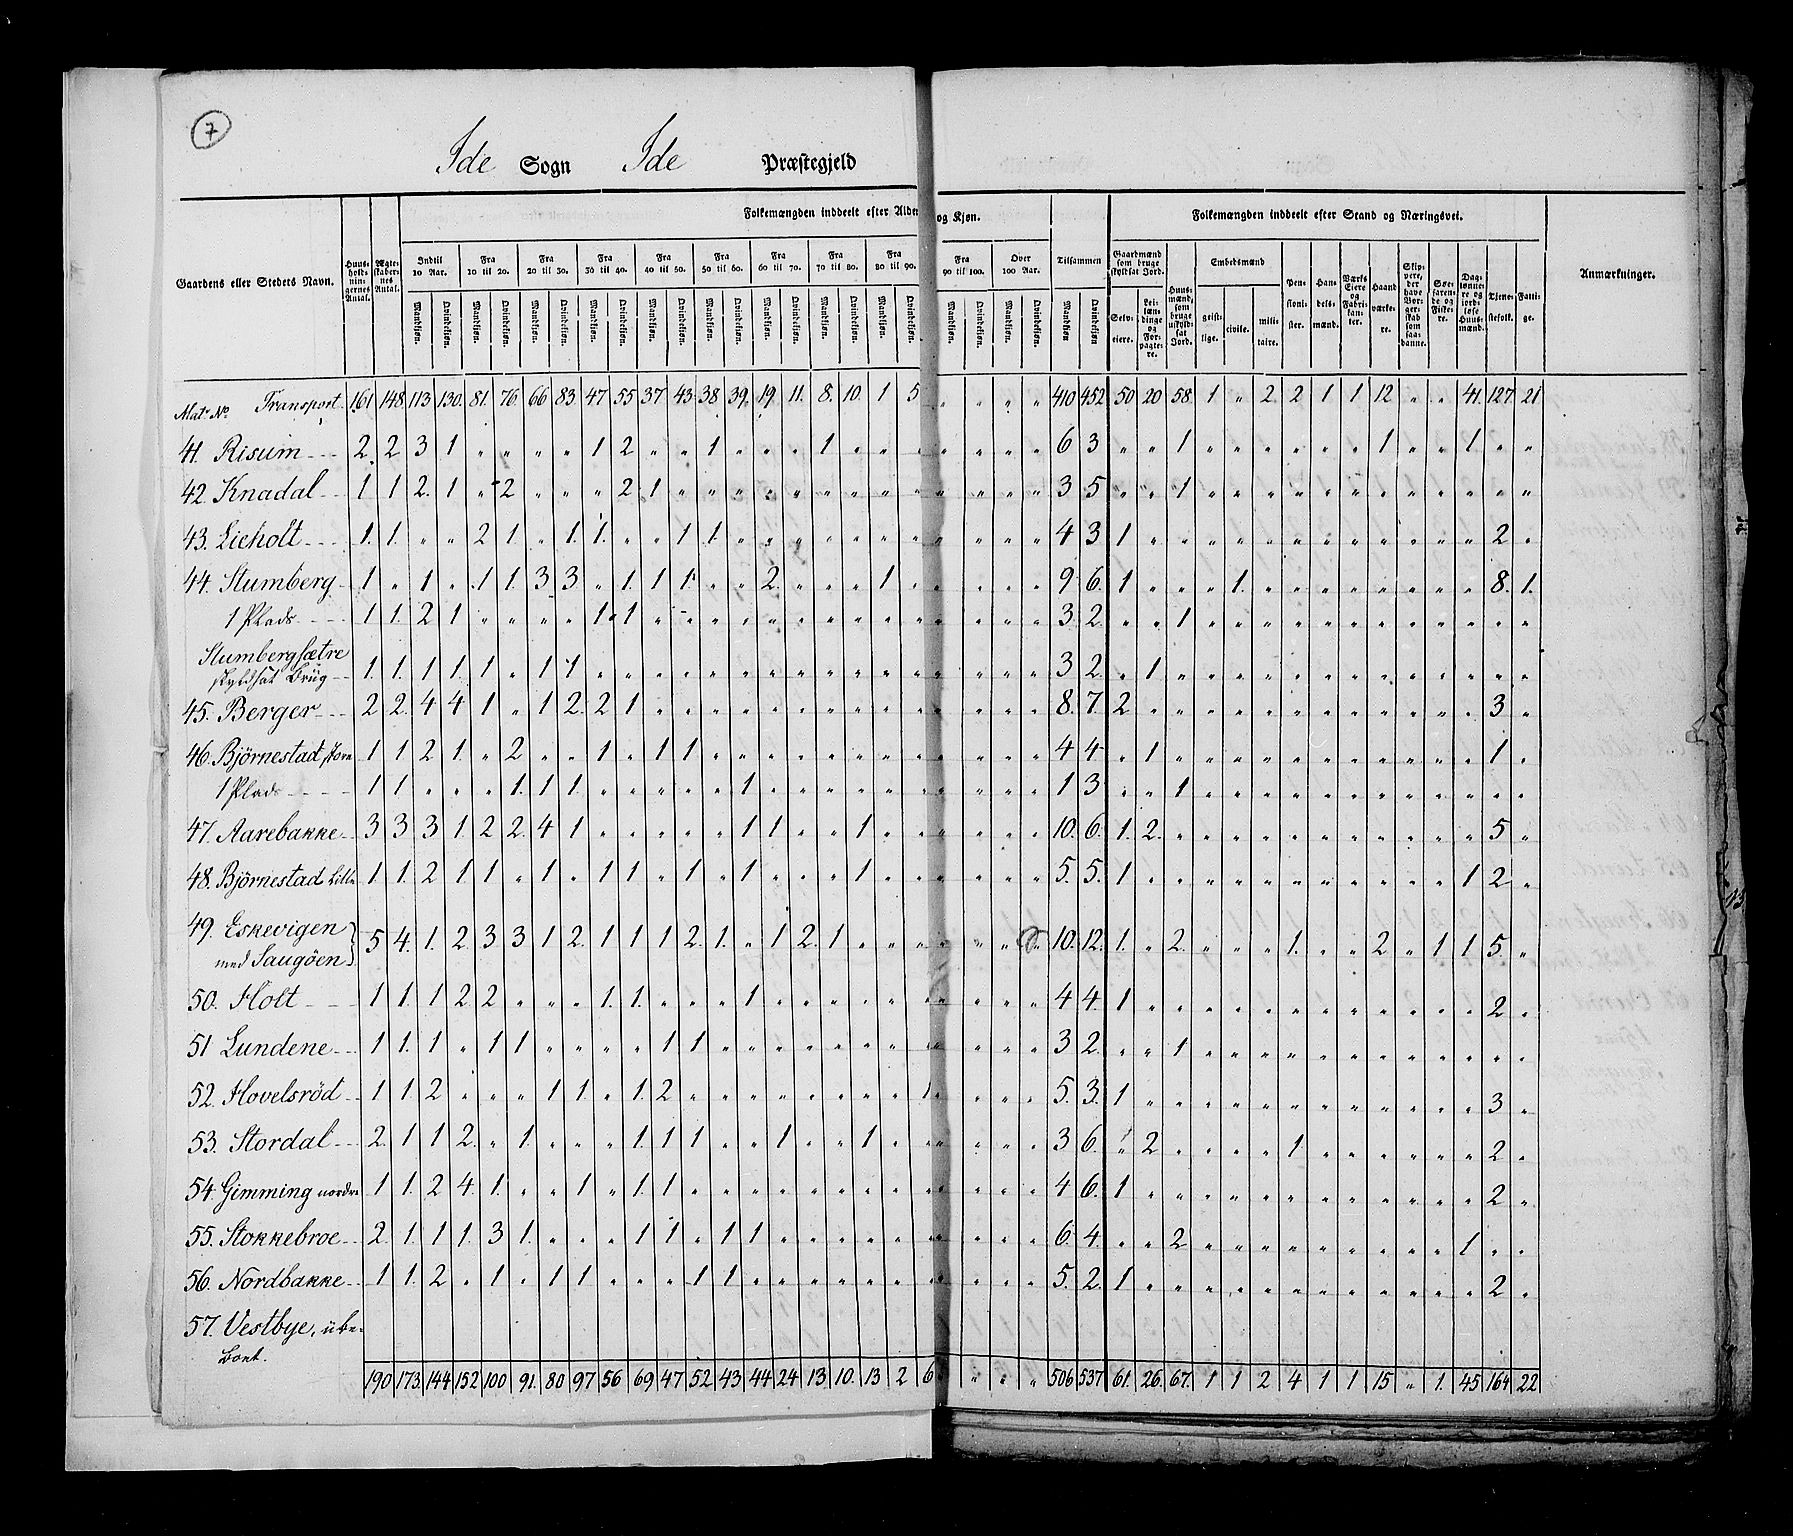 7
Ide Sogn Ide Præstegjeld
Gaardens eller Stedets Navn.
Huus-holdnin-gernes Antal.
Ægte-skaber-nes Antal.
Folkemængden inddeelt efter Alder og Kjøn.
Indtil 10 Aar. Fra 10 til 20. Fra 20 til 30. Fra 30 til 40. Fra 40 til 50. Fra 50 til 60. Fra 60 til 70. Fra 70 til 80. Fra 80 til 90. Fra 90 til 100. Over 100 Aar.
Tilsammen
Mandkjøn. Qvindekjøn.
Folkemængden inddeelt efter Stand og Næringsvei.
Gaardmænd som bruge skyldsat Jord.
Selv-eiere. Lei-læn-dinge og For-pagte-re.
Huus-mænd, som bruge uskyld-sat Jord.
Embedsmænd
geist-lige. civile. mili-taire.
Pen-sioni-ster. Han-dels-mænd. Værks Eiere og Fabri-kan-ter. Haand værke-re. Skip-pere, der have Bor-ger-skab som saa-danne. Søe-faren-de og Fiske-re. Dag-lønne-re og jord-løse Huus-mænd. Tjene-stefolk. Fatti-ge.
Anmærkninger.
Mat. No. Transport. 161 148 113 130 81 76 66 83 47 55 37 43 38 39 19 11 8 10 1 5 „ „ „ „ 410 452 50 20 58 1 „ 2 2 1 1 12 „ „ 41 127 21
41. Risum 2 2 3 1 „ „ „ „ 1 2 „ „ 1 „ „ „ 1 „ „ „ „ „ „ „ 6 3 „ „ 1 „ „ „ „ „ „ 1 „ „ 1 „ „
42. Knadal 1 1 2 1 „ 2 „ „ „ 2 1 „ „ „ „ „ „ „ „ „ „ „ „ „ 3 5 „ „ 1 „ „ „ „ „ „ „ „ „ „ „ „
43. Lieholt 1 1 „ „ 2 1 „ 1 1 „ „ 1 1 „ „ „ „ „ „ „ „ „ „ „ 4 3 1 „ „ „ „ „ „ „ „ „ „ „ „ 2 „
44. Stumberg 1 „ 1 „ 1 1 3 3 „ 1 1 1 „ „ 2 „ „ „ 1 „ „ „ „ „ 9 6 1 „ „ „ 1 „ „ „ „ „ „ „ „ 8 1
1 Plads 1 1 2 1 „ „ „ „ 1 1 „ „ „ „ „ „ „ „ „ „ „ „ „ „ 3 2 „ „ 1 „ „ „ „ „ „ „ „ „ „ „ „
Stumbergsætre
skyldsat Brug 1 1 1 1 1 „ 1 1 „ „ „ „ „ „ „ „ „ „ „ „ „ „ „ „ 3 2 „ 1 „ „ „ „ „ „ „ „ „ „ „ „ „
45. Berger 2 2 4 4 1 „ 1 2 2 1 „ „ „ „ „ „ „ „ „ „ „ „ „ „ 8 7 2 „ „ „ „ „ „ „ „ „ „ „ „ 3 „
46. Björnestad store 1 1 2 1 „ 2 „ „ 1 „ 1 1 „ „ „ „ „ „ „ „ „ „ „ „ 4 4 „ 1 „ „ „ „ „ „ „ „ „ „ „ 1 „
1 Plads 1 1 „ „ „ 1 1 1 „ „ „ „ „ 1 „ „ „ „ „ „ „ „ „ „ 1 3 „ „ 1 „ „ „ „ „ „ „ „ „ „ „ „
47. Aarebakke 3 3 3 1 2 2 4 1 „ „ „ „ „ 1 1 „ „ 1 „ „ „ „ „ „ 10 6 1 2 „ „ „ „ „ „ „ „ „ „ „ 5 „
48. Björnestad Lille 1 1 2 1 1 „ 1 „ 1 1 „ 1 „ 1 „ „ „ 1 „ „ „ „ „ „ 5 5 1 „ „ „ „ „ „ „ „ „ „ „ 1 2 „
49. Eskevigen
med Saugöen 5 4 1 2 3 3 1 2 1 1 1 2 1 „ 1 2 1 „ „ „ „ „ „ „ 10 12 1 „ 2 „ „ „ 1 „ „ 2 „ 1 1 5 „
50. Holt 1 1 1 2 2 „ „ „ 1 1 „ „ „ 1 „ „ „ „ „ „ „ „ „ „ 4 4 1 „ „ „ „ „ „ „ „ „ „ „ „ 2 „
51 Lundene 1 1 1 „ 1 1 „ „ „ „ 1 1 „ „ „ „ „ „ „ „ „ „ „ „ 3 2 „ „ 1 „ „ „ „ „ „ „ „ „ „ „ „
52. Hovelsröd 1 1 2 „ „ „ 1 1 „ 1 2 „ „ „ „ „ „ „ „ 1 „ „ „ „ 5 3 1 „ „ „ „ „ „ „ „ „ „ „ „ 3 „
53. Stordal 2 1 1 2 „ 1 „ „ „ 1 1 1 „ „ 1 „ „ 1 „ „ „ „ „ „ 3 6 „ 2 „ „ „ „ 1 „ „ „ „ „ „ 2 „
54. Gimming nordre 1 1 2 4 1 „ „ 1 „ 1 1 „ „ „ „ „ „ „ „ „ „ „ „ „ 4 6 1 „ „ „ „ „ „ „ „ „ „ „ „ 2 „
55. Stokkebroe 2 1 1 1 3 1 „ „ „ 1 1 „ 1 1 „ „ „ „ „ „ „ „ „ „ 6 4 „ „ 2 „ „ „ „ „ „ „ „ „ 1 „ „
56. Nordbakke 1 1 2 „ 1 „ 1 1 „ „ „ 1 1 „ „ „ „ „ „ „ „ „ „ „ 5 2 1 „ „ „ „ „ „ „ „ „ „ „ „ 2 „
57. Vestbye, ube-
boet.
190 173 144 152 100 91 80 97 56 69 47 52 43 44 24 13 10 13 2 6 „ „ „ „ 506 537 61 26 67 1 1 2 4 1 1 15 „ 1 45 164 22